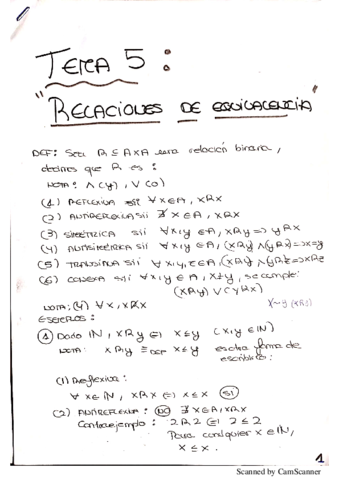 TEMA 5 :
"RELACIONES DE EQUIVALENCIA"
DEF: Sea R ⊆ A×A una relación binaria,
decimos que R es:
NOTA: ∧ (y), ∨ (o)
(1) REFLEXIVA sii ∀x∈A, xRx
(2) ANTIRREFLEXIVA sii ∄ x∈A, xRx
(3) SIMÉTRICA sii ∀x,y∈A, xRy => yRx
(4) ANTISIMÉTRICA sii ∀x,y∈A, (xRy)∧(yRx)=>x=y
(5) TRANSITIVA sii ∀x,y,z∈A, (xRy)∧(yRz)=>xRz
(6) CONEXA sii ∀x,y∈A, x≠y, se cumple
(xRy) ∨ (yRx)
NOTA: (4) ∀x, xRx
x~y (xRy)
EJEMPLOS:
① Dado ℕ, xRy ⇔ x≤y (x,y∈ℕ)
NOTA: xRy ≡DEF x≤y otra forma de
escribirlo:
(1) Reflexiva:
∀x∈ℕ, xRx ⇔ x≤x SI
(2) ANTIRREFLEXIVA: NO ∄ x∈A, xRx
Contraejemplo: 2R2 ⇔ 2≤2
Para cualquier x∈ℕ,
x≤x.
1
Scanned by CamScanner